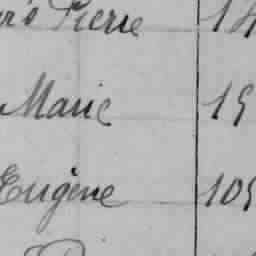 Pierre 14
Marie 19
Eugène 109